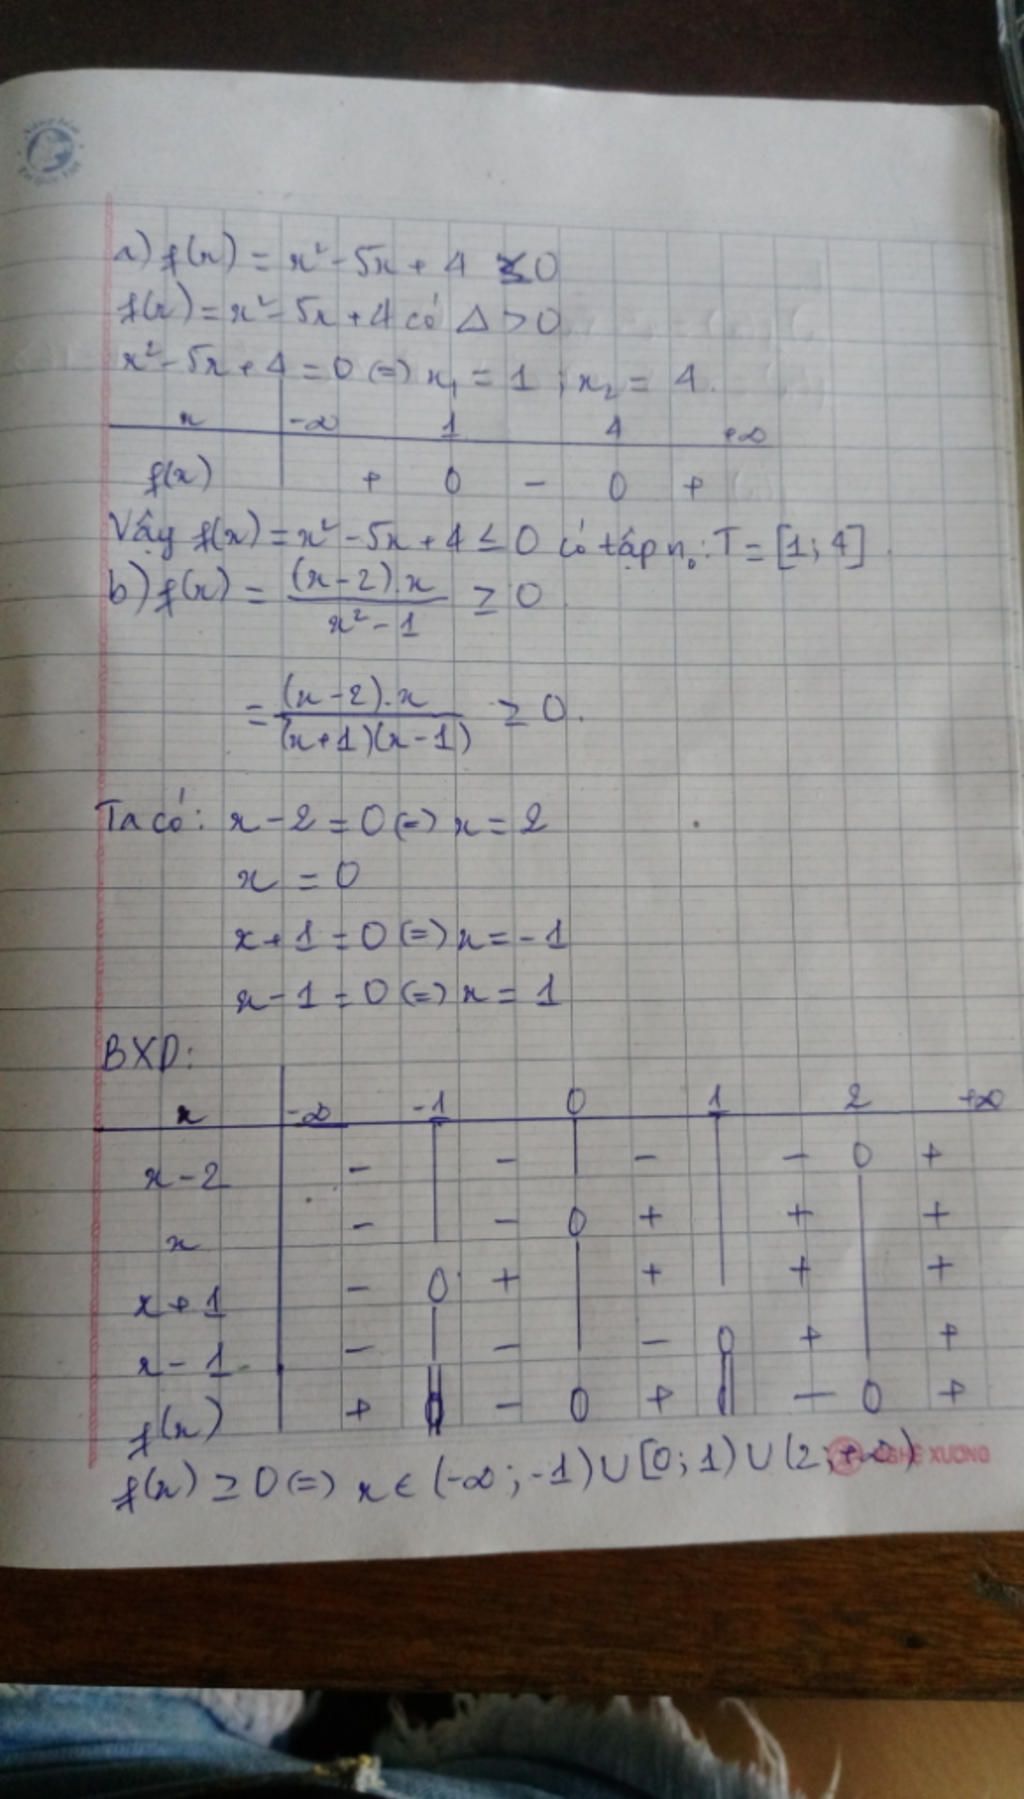 a) f(x) = x² - 5x + 4 ≤ 0
f(x) = x² - 5x + 4 có Δ > 0
x² - 5x + 4 = 0 (=) x₁ = 1 ; x₂ = 4.
x -∞ 1 4 +∞
f(x) + 0 - 0 +
Vậy f(x) = x² - 5x + 4 ≤ 0 có tập n₀: T = [1; 4].
b) f(x) = (x-2).x / x² - 1 ≥ 0
= (x-2).x / (x+1)(x-1) ≥ 0.
Ta có: x - 2 = 0 (=) x = 2
x = 0
x + 1 = 0 (=) x = -1
x - 1 = 0 (=) x = 1
BXD:
x -∞ -1 0 1 2 +∞
x - 2 - | - | - | - 0 +
x - | - 0 + | + | +
x + 1 - 0 + | + | + | +
x - 1 - | - | - 0 + | +
f(x) + || - 0 + || - 0 +
f(x) ≥ 0 (=) x ∈ (-∞; -1) ∪ [0; 1) ∪ (2; +∞)
XUONG